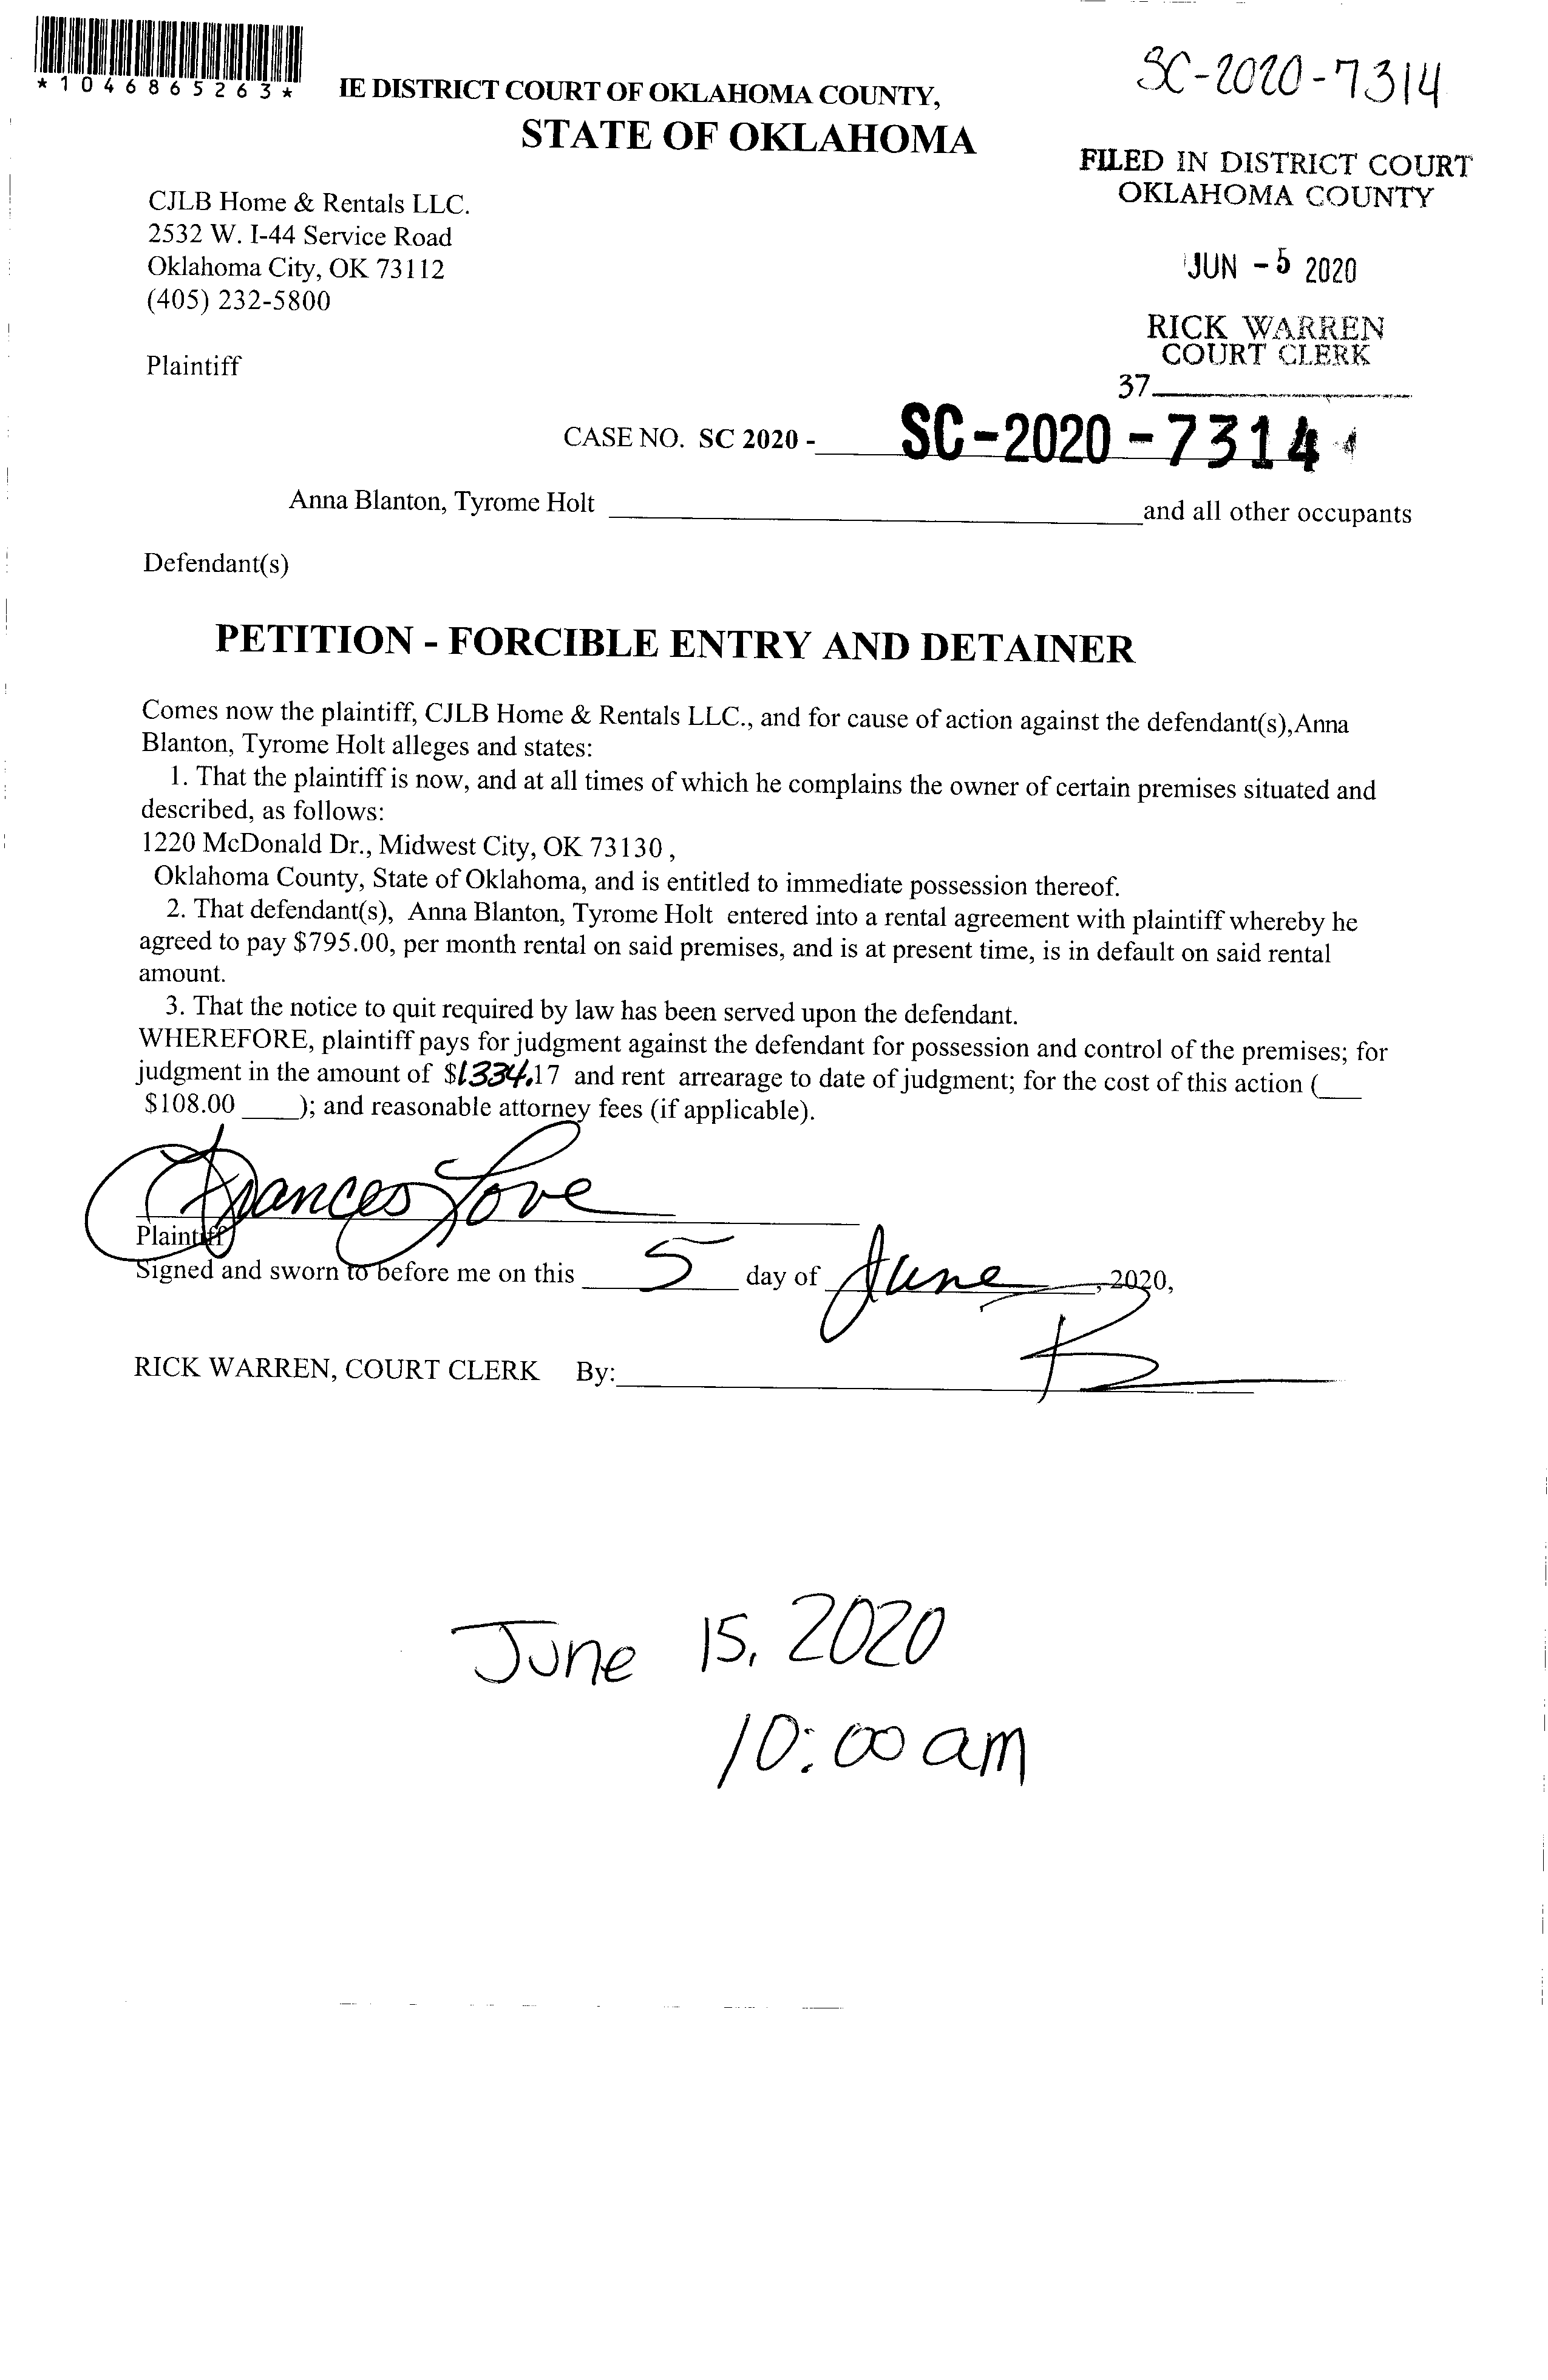 *1046865263*
IE DISTRICT COURT OF OKLAHOMA COUNTY,
STATE OF OKLAHOMA
SC-2020-7314
FILED IN DISTRICT COURT
OKLAHOMA COUNTY
JUN - 5 2020
RICK WARREN
COURT CLERK
37
CJLB Home & Rentals LLC.
2532 W. I-44 Service Road
Oklahoma City, OK 73112
(405) 232-5800
Plaintiff
CASE NO. SC 2020 - SC-2020-7314
Anna Blanton, Tyrome Holt and all other occupants
Defendant(s)
PETITION - FORCIBLE ENTRY AND DETAINER
Comes now the plaintiff, CJLB Home & Rentals LLC., and for cause of action against the defendant(s),Anna
Blanton, Tyrome Holt alleges and states:
1. That the plaintiff is now, and at all times of which he complains the owner of certain premises situated and
described, as follows:
1220 McDonald Dr., Midwest City, OK 73130 ,
Oklahoma County, State of Oklahoma, and is entitled to immediate possession thereof.
2. That defendant(s), Anna Blanton, Tyrome Holt entered into a rental agreement with plaintiff whereby he
agreed to pay $795.00, per month rental on said premises, and is at present time, is in default on said rental
amount.
3. That the notice to quit required by law has been served upon the defendant.
WHEREFORE, plaintiff pays for judgment against the defendant for possession and control of the premises; for
judgment in the amount of $1334.17 and rent arrearage to date of judgment; for the cost of this action (___
$108.00 ____); and reasonable attorney fees (if applicable).
Frances Love
Plaintiff
Signed and sworn to before me on this 5 day of June, 2020,
RICK WARREN, COURT CLERK By:
June 15, 2020
10:00 am